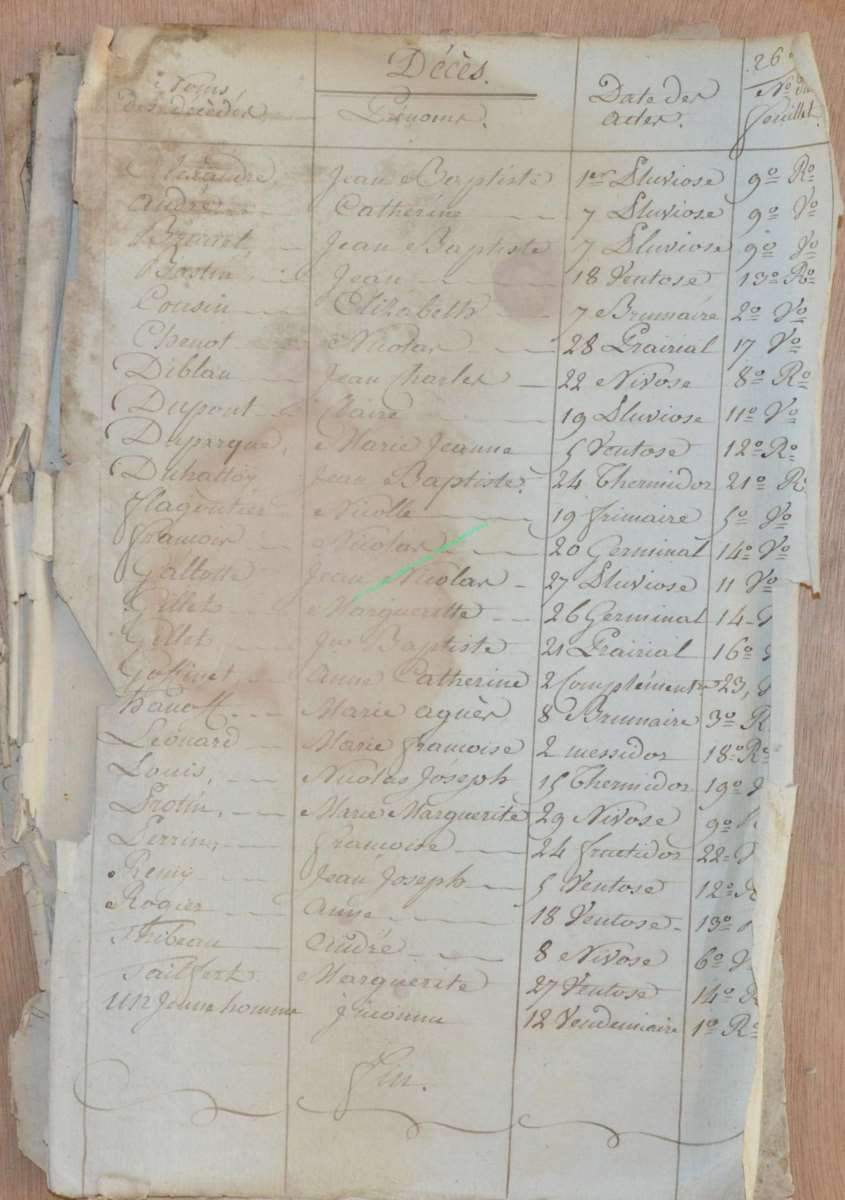 26
Décès.
Noms des décédés Prénoms. Date des actes. No. du feuillet.
Alexandre, Jean Baptiste 1er Pluviose 9o Ro
André Catherine 7 Pluviose 9o Vo
Jean Baptiste 7 Pluviose 9o Vo
Bastin, Jean 18 Ventose 13o Ro
Cousin Elizabeth 7 Brumaire 2o Vo
Chenot Nicolas 28 Prairial 17 Vo
Diblau Jean Charles 22 Nivose 8o Ro
Dupont Claire 19 Pluviose 11o Vo
Duparque, Marie Jeanne 5 Ventose 12o Ro
Duhattoy Jean Baptiste 24 Thermidor 21o R
Flageutier Nicolle 19 frimaire 5o Vo
francois Nicolas 20 Germinal 14o Vo
Galtotte Jean Nicolas 27 Pluviose 11 Vo
Gillet Margueritte 26 Germinal 14
Gillet Jn Baptiste 21 Prairial 16o
Goffinet, Anne Catherine 2 Complémentre 23,
hanoff Marie agnès 8 Brumaire 3o R
Léonard Marie francoise 2 messidor 18o Ro
Louis, Nicolas Joseph 15 Thermidor 19o
Protin, Marie Marguerite 29 Nivose 9o
Perrin, francoise 24 fructidor 22
Remy Jean Joseph 5 Ventose 12o R
Rogier Anne 18 Ventose 13o
Thibeau André 8 Nivose 6o
Tailfert Marguerite 27 Ventose 14o R
un Jeune homme jnconnu 12 Vendemiaire 1o Ro
Fin.